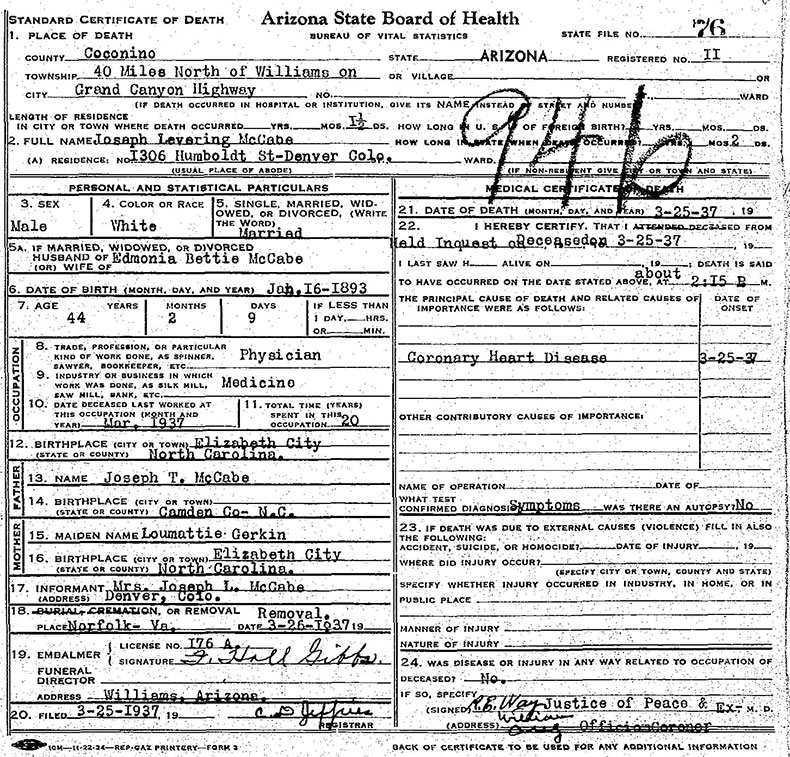 STANDARD CERTIFICATE OF DEATH Arizona State Board of Health
1. PLACE OF DEATH BUREAU OF VITAL STATISTICS STATE FILE NO. 76
COUNTY Coconino STATE ARIZONA REGISTERED NO. II
TOWNSHIP 40 Miles North of Williams on OR VILLAGE OR
CITY Grand Canyon Highway NO. WARD
(IF DEATH OCCURRED IN HOSPITAL OR INSTITUTION, GIVE ITS NAME INSTEAD OF STREET AND NUMBER)
94b
LENGTH OF RESIDENCE
IN CITY OR TOWN WHERE DEATH OCCURRED YRS. MOS. I½ DS. HOW LONG IN U. S. IF OF FOREIGN BIRTH? YRS. MOS. DS.
2. FULL NAME Joseph Levering McCabe HOW LONG IN STATE WHEN DEATH OCCURRED? YRS. MOS. 2 DS.
(A) RESIDENCE: NO. I306 Humboldt St-Denver Colo. WARD.
(USUAL PLACE OF ABODE) (IF NON-RESIDENT GIVE CITY OR TOWN AND STATE)
PERSONAL AND STATISTICAL PARTICULARS
3. SEX
Male
4. COLOR OR RACE
White
5. SINGLE, MARRIED, WID-
OWED, OR DIVORCED, (WRITE
THE WORD)
Married
5A. IF MARRIED, WIDOWED, OR DIVORCED
HUSBAND OF Edmonia Bettie McCabe
(OR) WIFE OF
6. DATE OF BIRTH (MONTH, DAY, AND YEAR) Jan, I6-I893
7. AGE YEARS MONTHS DAYS IF LESS THAN
44 2 9 1 DAY, HRS.
OR MIN.
OCCUPATION
8. TRADE, PROFESSION, OR PARTICULAR
KIND OF WORK DONE, AS SPINNER,
SAWYER, BOOKKEEPER, ETC. Physician
9. INDUSTRY OR BUSINESS IN WHICH
WORK WAS DONE, AS SILK MILL,
SAW MILL, BANK, ETC. Medicine
10. DATE DECEASED LAST WORKED AT
THIS OCCUPATION (MONTH AND
YEAR) Mar, I937
11. TOTAL TIME (YEARS)
SPENT IN THIS
OCCUPATION 20
12. BIRTHPLACE (CITY OR TOWN) Elizabeth City
(STATE OR COUNTY) North Carolina.
FATHER
13. NAME Joseph T. McCabe
14. BIRTHPLACE (CITY OR TOWN)
(STATE OR COUNTY) Camden Co- N.C.
MOTHER
15. MAIDEN NAME Loumattie Gerkin
16. BIRTHPLACE (CITY OR TOWN) Elizabeth City
(STATE OR COUNTY) North Carolina.
17. INFORMANT Mrs. Joseph L. McCabe
(ADDRESS) Denver, Colo.
18. BURIAL, CREMATION, OR REMOVAL Removal.
PLACE Norfolk- Va. DATE 3-26-I937 19
19. EMBALMER { LICENSE NO. I76 A
SIGNATURE F. Hall Gibbs.
FUNERAL
DIRECTOR
ADDRESS Williams, Arizona.
20. FILED 3-25-I937, 19 C D Jeffries
REGISTRAR
MEDICAL CERTIFICATE OF DEATH
21. DATE OF DEATH (MONTH, DAY, AND YEAR) 3-25-37 , 19
22. I HEREBY CERTIFY, THAT I ATTENDED DECEASED FROM
Held Inquest on Deceased on 3-25-37 , 19
I LAST SAW H ALIVE ON , 19 ; DEATH IS SAID
about
TO HAVE OCCURRED ON THE DATE STATED ABOVE, AT 2:I5 P M.
THE PRINCIPAL CAUSE OF DEATH AND RELATED CAUSES OF
IMPORTANCE WERE AS FOLLOWS:
DATE OF
ONSET
Coronary Heart Disease 3-25-37
OTHER CONTRIBUTORY CAUSES OF IMPORTANCE:
NAME OF OPERATION DATE OF
WHAT TEST
CONFIRMED DIAGNOSIS Symptoms WAS THERE AN AUTOPSY? No
23. IF DEATH WAS DUE TO EXTERNAL CAUSES (VIOLENCE) FILL IN ALSO
THE FOLLOWING:
ACCIDENT, SUICIDE, OR HOMICIDE? DATE OF INJURY , 19
WHERE DID INJURY OCCUR?
(SPECIFY CITY OR TOWN, COUNTY AND STATE)
SPECIFY WHETHER INJURY OCCURRED IN INDUSTRY, IN HOME, OR IN
PUBLIC PLACE
MANNER OF INJURY
NATURE OF INJURY
24. WAS DISEASE OR INJURY IN ANY WAY RELATED TO OCCUPATION OF
DECEASED? No.
IF SO, SPECIFY
(SIGNED) R.E. Way Justice of Peace & Ex- M. D.
(ADDRESS) Williams Ariz Officio Coroner
10M—11-22-34—REP-GAZ PRINTERY—FORM 3 BACK OF CERTIFICATE TO BE USED FOR ANY ADDITIONAL INFORMATION